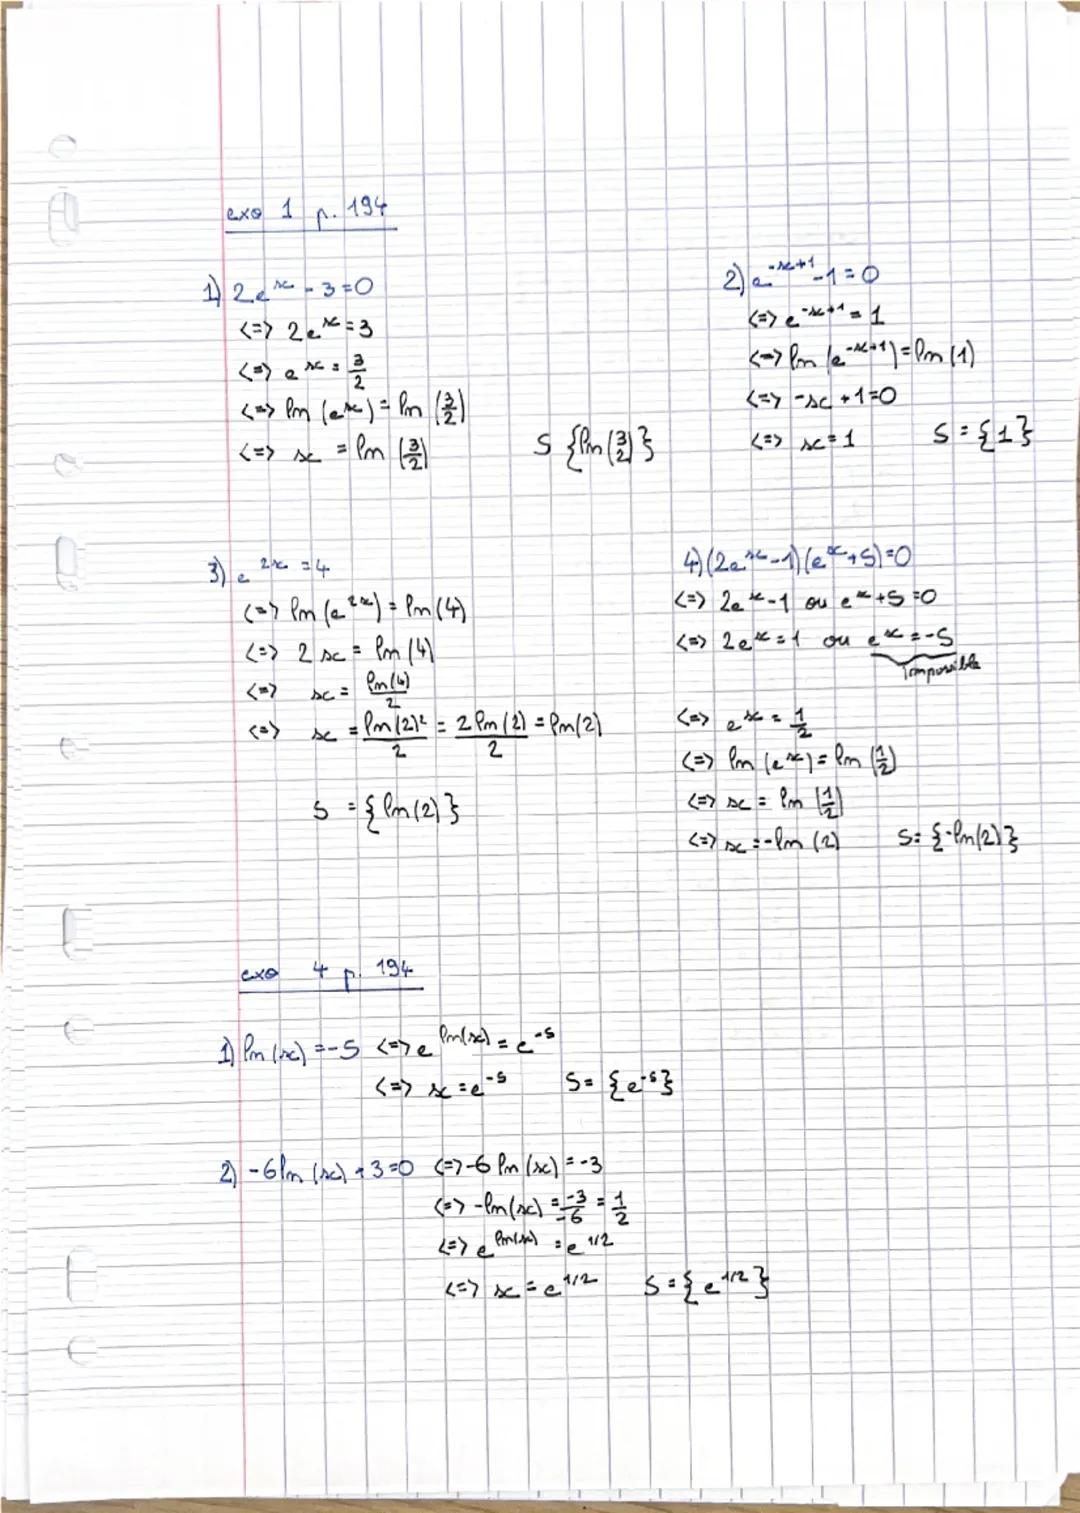 exo 1 p. 194
1) 2e^x - 3 = 0
<=> 2e^x = 3
<=> e^x = 3/2
<=> ln (e^x) = ln (3/2)
<=> x = ln (3/2)
S {ln (3/2)}
2) e^-x+1 - 1 = 0
<=> e^-x+1 = 1
<=> ln (e^-x+1) = ln (1)
<=> -x + 1 = 0
<=> x = 1
S = {1}
3) e^2x = 4
<=> ln (e^2x) = ln (4)
<=> 2x = ln (4)
<=> x = ln(4)/2
<=> x = ln(2)²/2 = 2 ln (2)/2 = ln(2)
S = {ln (2)}
4) (2e^x - 1) (e^x + 5) = 0
<=> 2e^x - 1 ou e^x + 5 = 0
<=> 2e^x = 1 ou e^x = -5
Impossible
<=> e^x = 1/2
<=> ln (e^x) = ln (1/2)
<=> x = ln (1/2)
<=> x = -ln (2)
S = {-ln(2)}
exo 4 p. 194
1) ln (x) = -5 <=> e^ln(x) = e^-5
<=> x = e^-5
S = {e^-5}
2) -6ln (x) + 3 = 0 <=> -6 ln (x) = -3
<=> -ln(x) = -3/-6 = 1/2
<=> e^ln(x) = e^1/2
<=> x = e^1/2
S = {e^1/2}